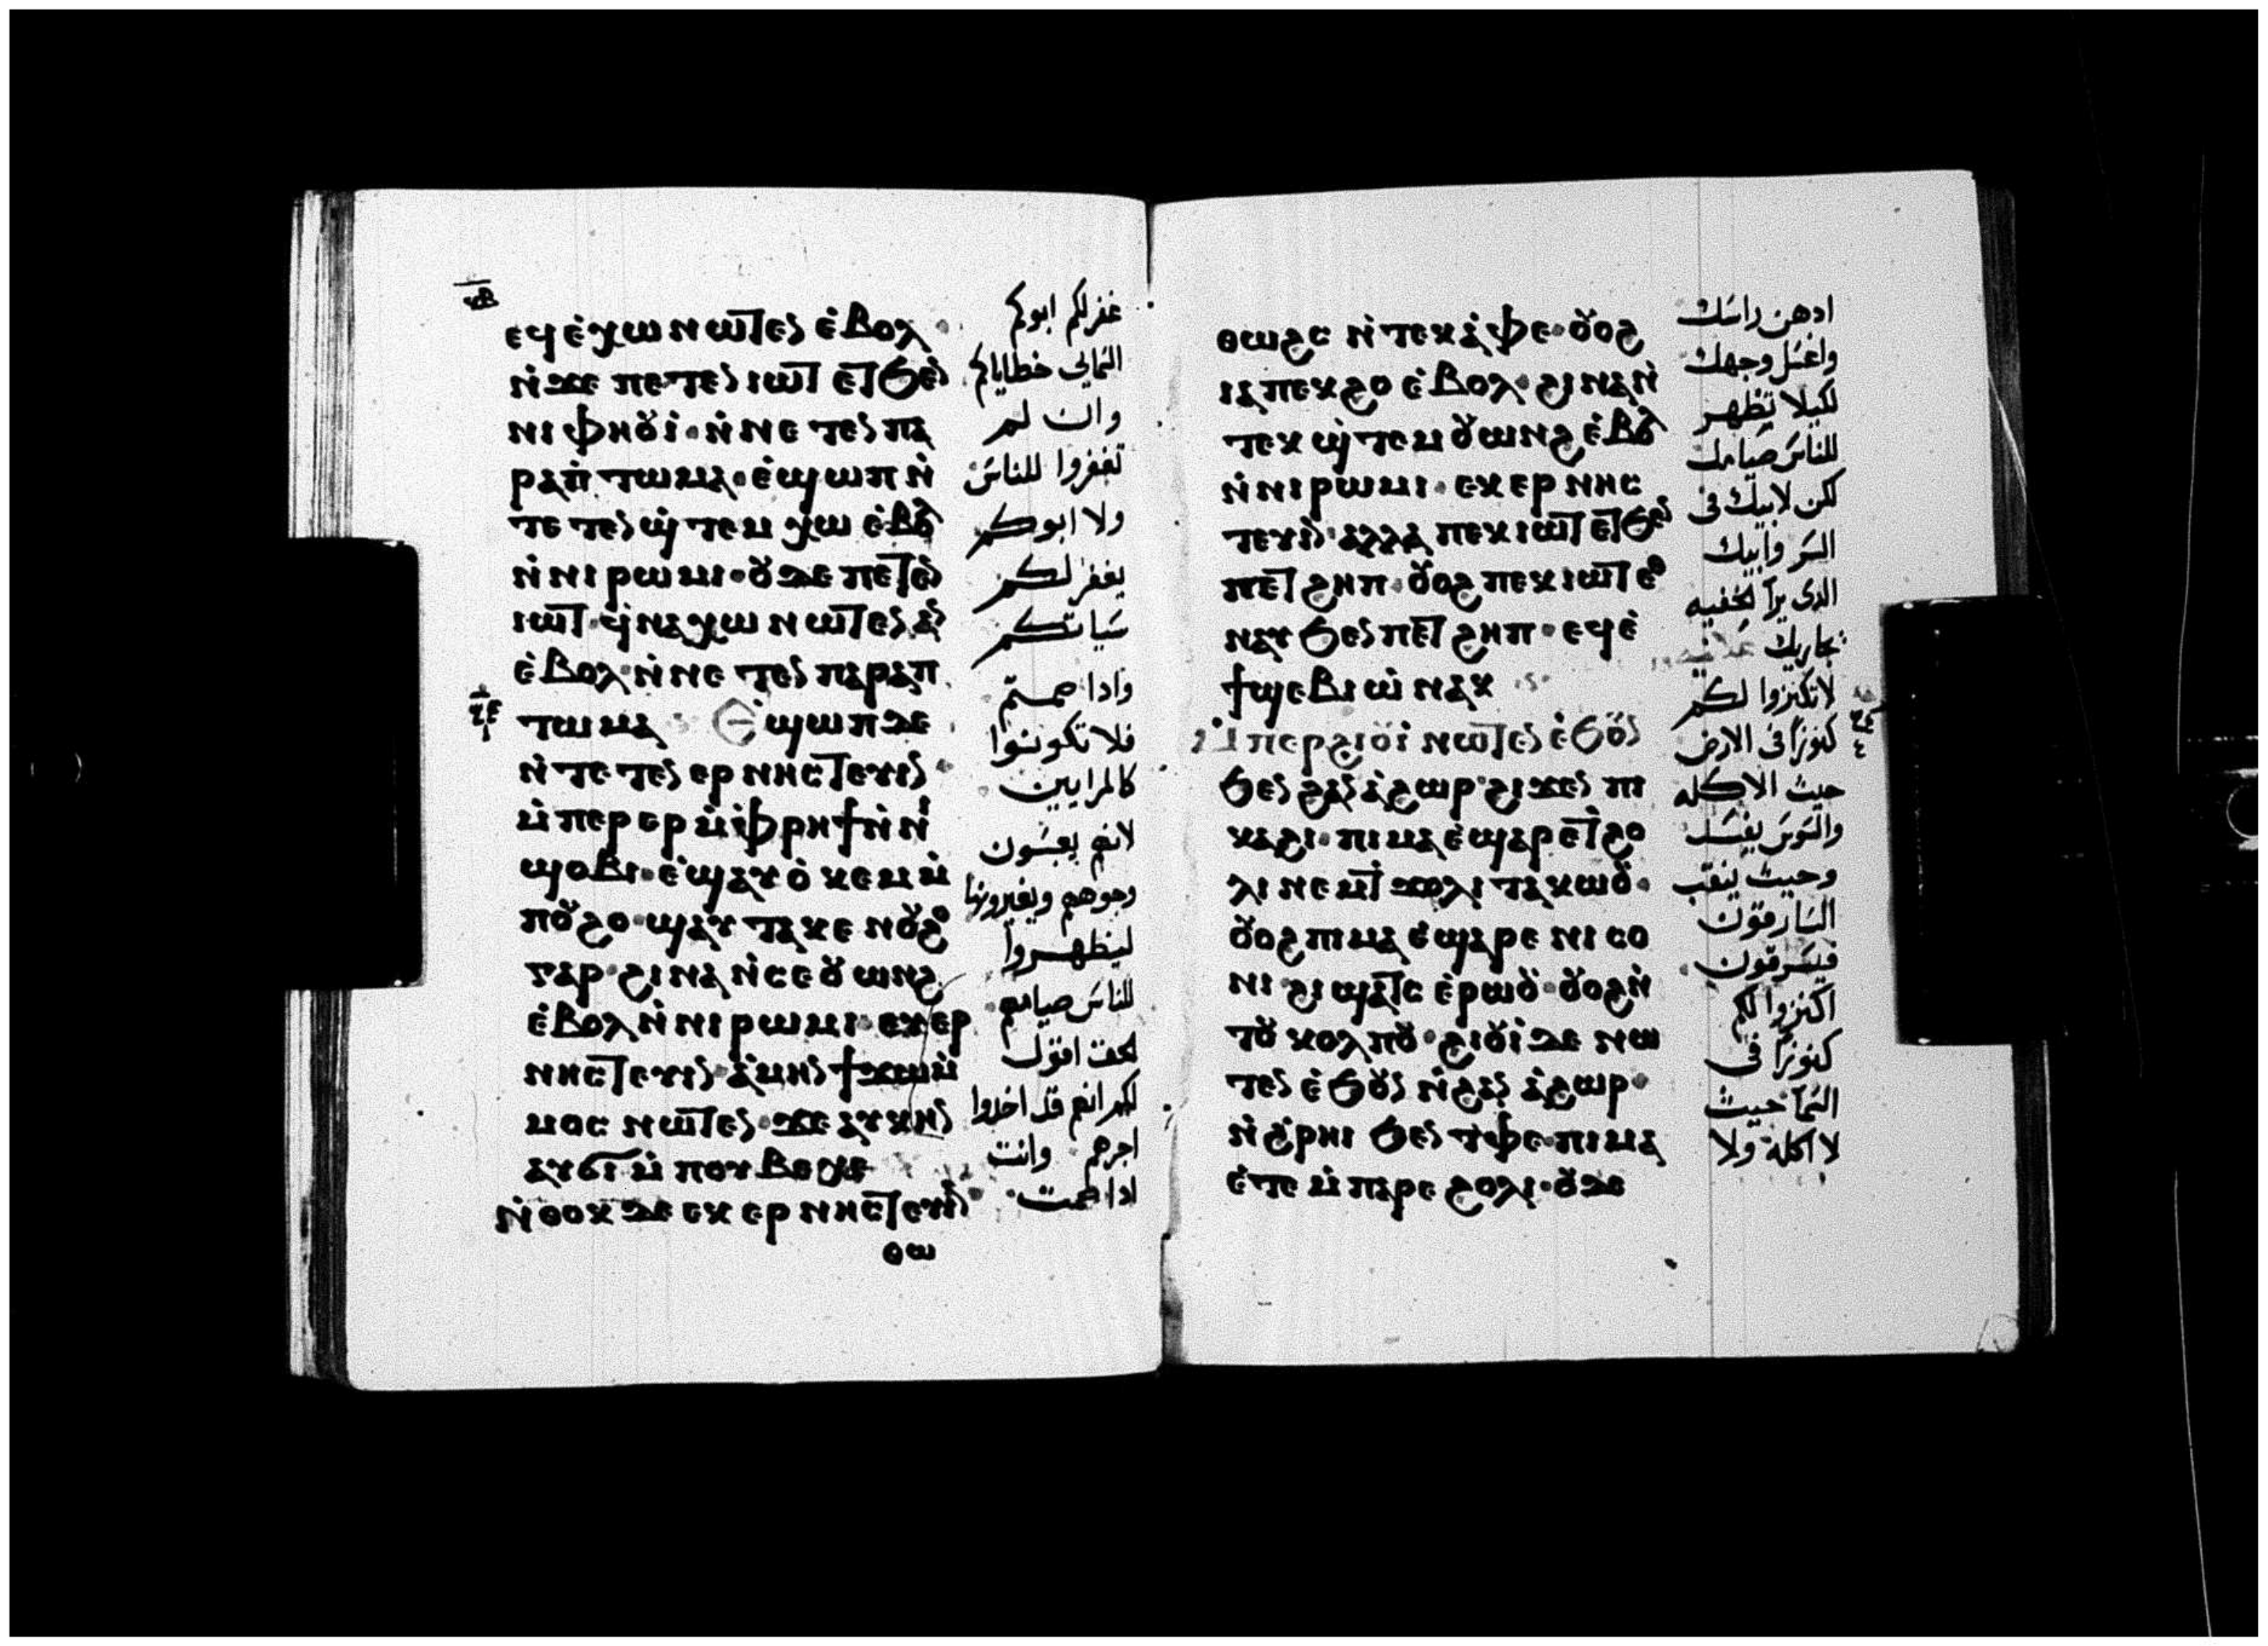 ⲕⲃ
ⲉϥⲉ̀ⲭⲱ ⲛⲱⲧⲉⲛ ⲉ̀ⲃⲟⲗ
ⲛ̀ϫⲉ ⲡⲉⲧⲉⲛⲓⲱⲧ ⲉⲧϧⲉⲛ
ⲛⲓⲫⲏⲟⲩⲓ̀· ⲛ̀ⲛⲉⲧⲉⲛⲡⲁ
ⲣⲁⲡ̀ⲧⲱⲙⲁ· ⲉ̀ϣⲱⲡ ⲛ̀
ⲧⲉⲧⲉⲛϣ̀ⲧⲉⲙⲭⲱ ⲉ̀ⲃⲟⲗ
ⲛ̀ⲛⲓⲣⲱⲙⲓ· ⲟⲩⲇⲉ ⲡⲉⲧⲉⲛ
ⲓⲱⲧ· ϥ̀ⲛⲁⲭⲱ ⲛⲱⲧⲉⲛ ⲁⲛ
ⲉ̀ⲃⲟⲗ· ⲛ̀ⲛⲉⲧⲉⲛⲡⲁⲣⲁⲡ
ⲧⲱⲙⲁ Ⲉ̀ϣⲱⲡ ⲇⲉ
ⲛ̀ⲧⲉⲧⲉⲛⲉⲣⲛⲏⲥⲧⲉⲩⲓⲛ·
ⲙ̀ⲡⲉⲣⲉⲣ ⲙ̀ⲫⲣⲏϯ ⲛ̀ⲛⲓ
ϣⲟⲃⲓ· ⲉ̀ϣⲁⲩⲟ̀ⲕⲉⲙ ⲙ̀
ⲡⲟⲩϩⲟ· ϣⲁⲩⲧⲁⲕⲉ ⲛⲟⲩϩⲟ
ⲅⲁⲣ· ϩⲓⲛⲁ ⲛ̀ⲥⲉⲟⲩⲱⲛϩ
ⲉ̀ⲃⲟⲗ ⲛ̀ⲛⲓⲣⲱⲙⲓ· ⲉⲩⲉⲣ
ⲛⲏⲥⲧⲉⲩⲓⲛ· ⲁ̀ⲙⲏⲛ ϯϫⲱ ⲙ̀
ⲙⲟⲥ ⲛⲱⲧⲉⲛ· ϫⲉ ⲁⲩⲕⲏⲛ
ⲁⲩϭⲓ ⲙ̀ⲡⲟⲩⲃⲉⲭⲉ
ⲛ̀ⲑⲟⲕ ⲇⲉ ⲉⲕⲉⲣⲛⲏⲥⲧⲉⲩⲓⲛ
ⲑⲱ
غفر لكم ابوكم
السمايى خطاياكم
وان لم
تغفروا للناس
ولا ابوكم
يغفر لكم
سياتكم
واذا صمتم
فلا تكونوا
كالمرايين
لانهم يعبسون
وجوههم ويغيرونها
ليظهروا
للناس صيامهم
الحق اقول
لكم انهم قد اخذوا
اجرهم وانت
اذا صمت
ⲑⲱϩⲥ ⲛ̀ⲧⲉⲕⲁ̀ⲫⲉ· ⲟⲩⲟϩ
ⲓⲁ ⲡⲉⲕϩⲟ ⲉ̀ⲃⲟⲗ· ϩⲓⲛⲁ ⲛ̀
ⲧⲉⲕϣ̀ⲧⲉⲙⲟⲩⲱⲛϩ ⲉ̀ⲃⲟⲗ
ⲛ̀ⲛⲓⲣⲱⲙⲓ· ⲉⲕⲉⲣⲛⲏⲥ
ⲧⲉⲩⲓⲛ· ⲁⲗⲗⲁ ⲡⲉⲕⲓⲱⲧ ⲉⲧϧⲉⲛ
ⲡⲉⲧϩⲏⲡ· ⲟⲩⲟϩ ⲡⲉⲕⲓⲱⲧ ⲉⲑ
ⲛⲁⲩ ϧⲉⲛ ⲡⲉⲧϩⲏⲡ· ⲉϥⲉ̀
ϯϣⲉⲃⲓⲱ̀ ⲛⲁⲕ
ⲙ̀ⲡⲉⲣϩⲓⲟⲩⲓ̀ ⲛⲱⲧⲉⲛ ⲉ̀ϧⲟⲩⲛ
ϧⲉⲛ ϩⲁⲛⲁ̀ϩⲱⲣ· ϩⲓϫⲉⲛ ⲡⲓ
ⲕⲁϩⲓ· ⲡⲓⲙⲁ ⲉ̀ϣⲁⲣⲉ ⲧϩⲟ
ⲗⲓ ⲛⲉⲙ ϯϫⲟⲗⲓ ⲧⲁⲕⲱⲟⲩ·
ⲟⲩⲟϩ ⲡⲓⲙⲁ ⲉ̀ϣⲁⲣⲉ ⲛⲓⲥⲟ
ⲛⲓ ϩⲓϣⲁⲧⲥ ⲉ̀ⲣⲱⲟⲩ· ⲟⲩⲟϩ ⲛ̀
ⲧⲟⲩⲕⲟⲗⲡⲟⲩ· ϩⲓⲟⲩⲓ̀ ⲇⲉ ⲛⲱ
ⲧⲉⲛ ⲉ̀ϧⲟⲩⲛ ⲛ̀ϩⲁⲛⲁ̀ϩⲱⲣ·
ⲛ̀ϩ̀ⲣⲏⲓ ϧⲉⲛ ⲧⲫⲉ· ⲡⲓⲙⲁ
ⲉ̀ⲧⲉ ⲙ̀ⲡⲁⲣⲉ ϩⲟⲗⲓ· ⲟⲩⲇⲉ
ادهن راسك
واغسل وجهك
لكيلا تظهر
للناس صيامك
لكن لابيك فى
السر وابيك
الذى يرا الخفيه
يجازيك
لا تكنزوا لكم
كنوزًا فى الارض
حيث الاكله
والسوس يفسد
وحيث ينقب
السارقون
فيسرقون
اكنزوا لكم
كنوزًا فى
السمآ حيث
لا اكله ولا